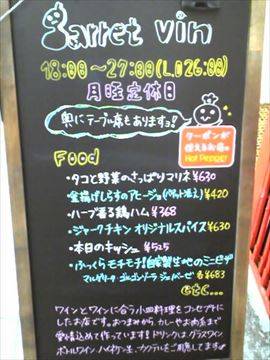 garret vin
18:00～27:00(L.O 26:00)
月曜定休日
奥にテーブル席もありますョ!
クーポンが
使えるお店。
Hot Pepper
Food
・タコと野菜のさっぱりマリネ ¥630
・釜揚げしらすのアヒージョ(バゲット添え) ¥420
・ハーブ香る鶏ハム ¥368
・ジャークチキン オリジナルスパイス ¥630
・本日のキッシュ ¥525
・ふっくらモチモチ!自家製生地のミニピザ
マルゲリータ ゴルゴンゾーラ ジェノベーゼ 各¥683
etc...
ワインとワインに合う小皿料理をコンセプトに
したお店です。おつまみから カレーやお肉系まで
愛を込めて作っています!ドリンクは、グラスワイン
ボトルワイン ハイボール 生
ご用意してます